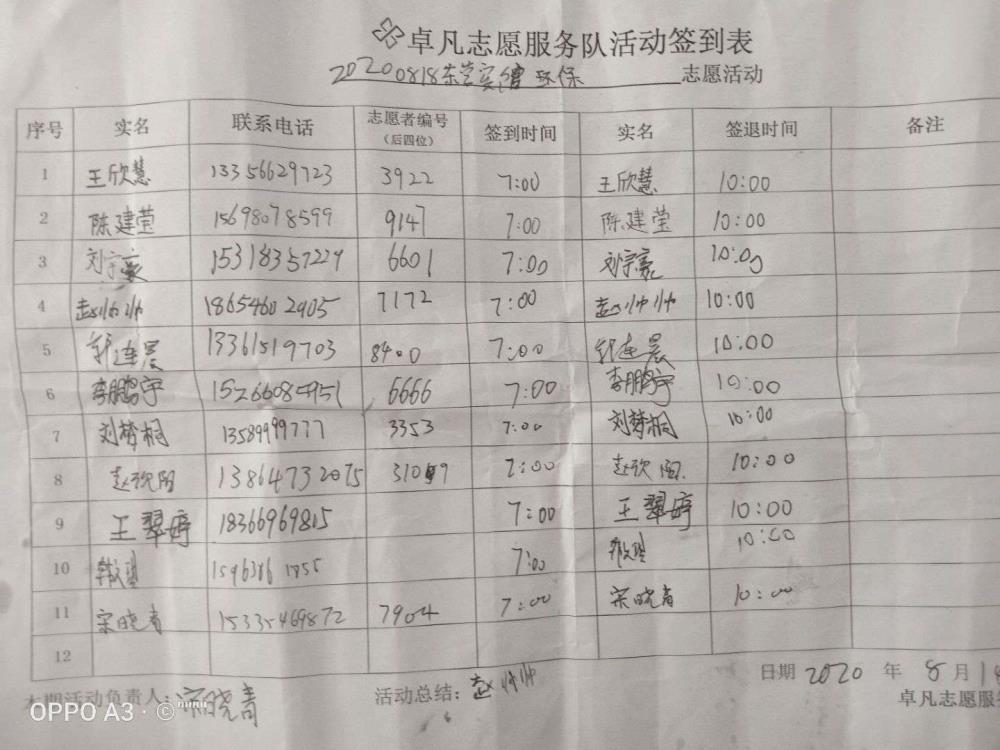 卓凡志愿服务队活动签到表
20200818东营实缯环保 志愿活动
序号 实名 联系电话 志愿者编号(后四位) 签到时间 实名 签退时间 备注
1 王欣慧 13356629723 3922 7:00 王欣慧 10:00
2 陈建莹 15698078599 9147 7:00 陈建莹 10:00
3 刘宗豪 15318357229 6601 7:00 刘宗豪 10:00
4 赵帅帅 18654602905 7172 7:00 赵帅帅 10:00
5 郭连晨 13361519703 8400 7:00 郭连晨 10:00
6 李鹏宇 6666 7:00 李鹏宇 10:00
7 刘梦桐 13589999777 3353 7:00 刘梦桐 10:00
8 赵欣阳 13864732075 7:00 赵欣阳 10:00
9 王翠婷 18366969815 7:00 王翠婷 10:00
10 7:00 10:00
11 宋晓青 15335469872 7904 7:00 宋晓青 10:00
12
日期 2020 年 8 月 18
本期活动负责人: 宋晓青 活动总结: 赵帅帅
卓凡志愿服务
OPPO A3 · ©